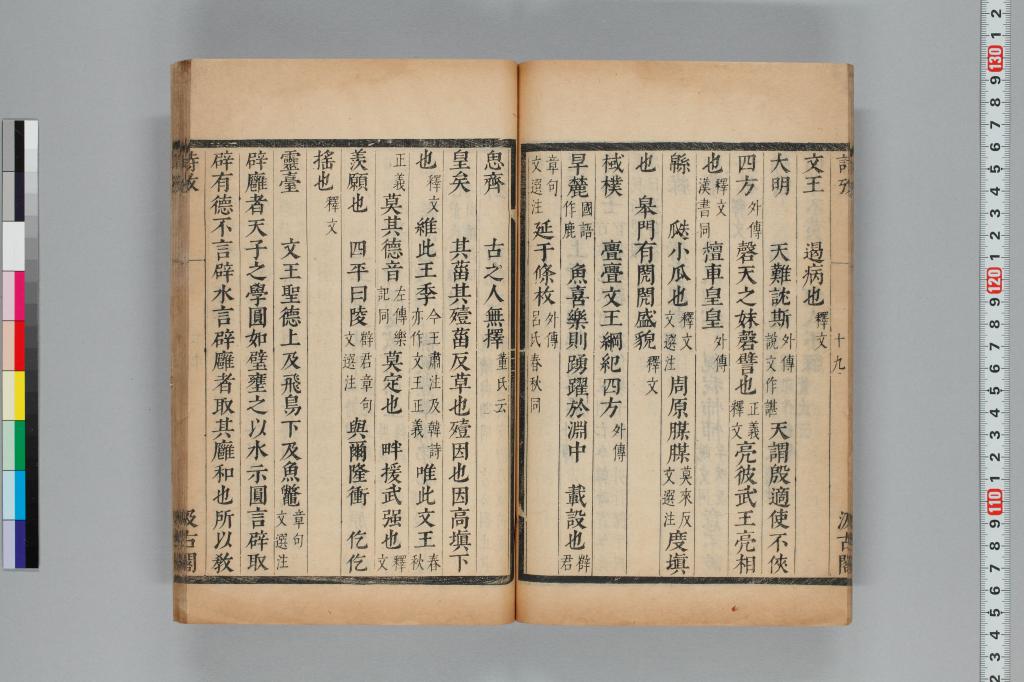 詩攷 十九 汲古閣
文王 遏病也釋文
大明 天難訦斯外傳說文作諶 天謂殷適使不俠
四方外傳 磬天之妹磬譬也正義釋文 亮彼武王亮相
也釋文漢書同 檀車皇皇外傳
緜 瓞小瓜也釋文文選注 周原腜腜莫來反文選注 度塡
也 皋門有閌閌盛貌釋文
棫樸 亹亹文王綱紀四方外傳
旱麓國語作鹿 魚喜樂則踴躍於淵中 載設也薛君
章句文選注 延于條枚外傳呂氏春秋同
思齊 古之人無擇董氏云
皇矣 其菑其殪菑反草也殪因也因高塡下
也釋文 維此王季今王肅注及韓詩亦作文王正義 唯此文王春秋
正義 莫其德音左傳樂記同 莫定也 畔援武强也釋文
羨願也 四平曰陵薛君章句文選注 與爾隆衝 仡仡
搖也釋文
靈臺 文王聖德上及飛鳥下及魚鼈章句文選注
辟廱者天子之學圓如璧壅之以水示圓言辟取
辟有德不言辟水言辟廱者取其廱和也所以敎
詩攷 汲古閣